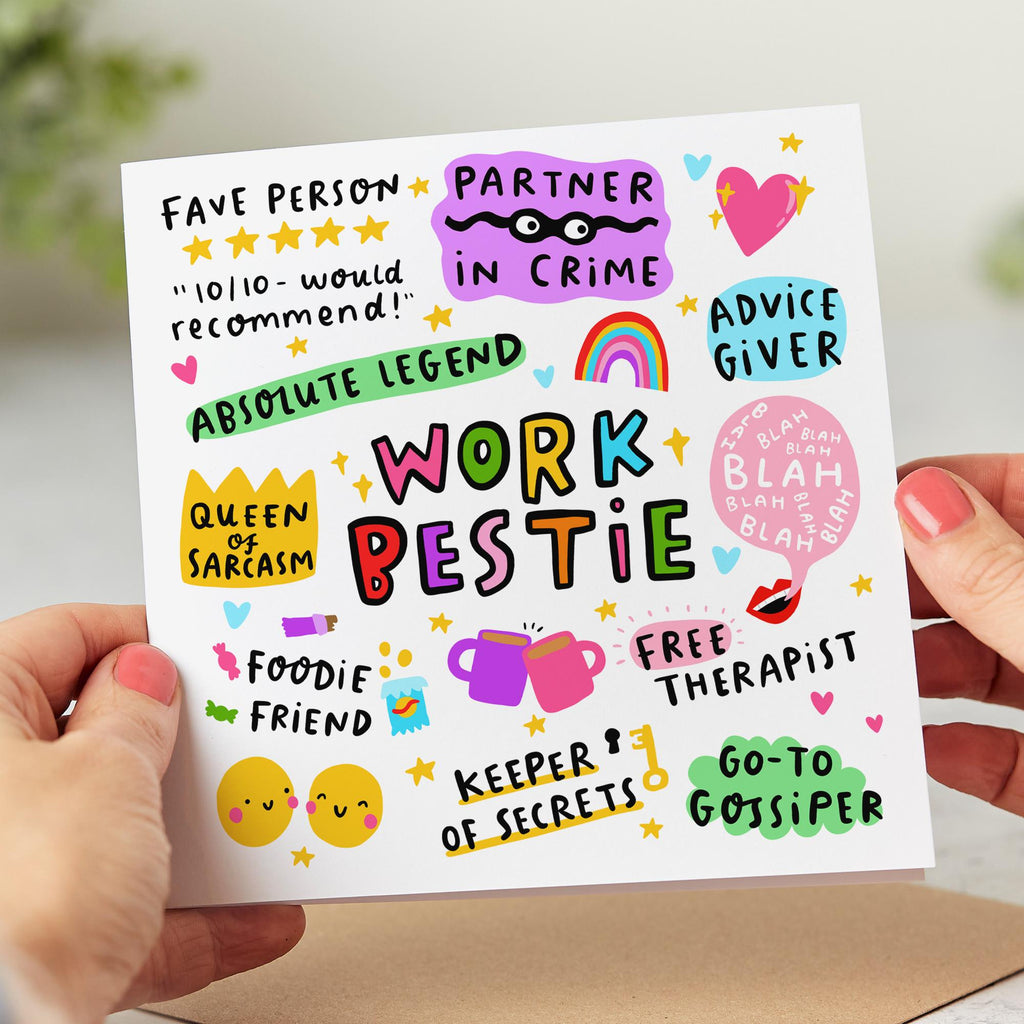 FAVE PERSON
"10/10 - would
recommend!"
PARTNER
IN CRIME
ADVICE
GIVER
ABSOLUTE LEGEND
WORK
BESTIE
BLAH
BLAH
BLAH
BLAH
BLAH
BLAH
BLAH
BLAH
BLAH
QUEEN
OF
SARCASM
FOODIE
FRIEND
FREE
THERAPIST
KEEPER
OF SECRETS
GO-TO
GOSSIPER